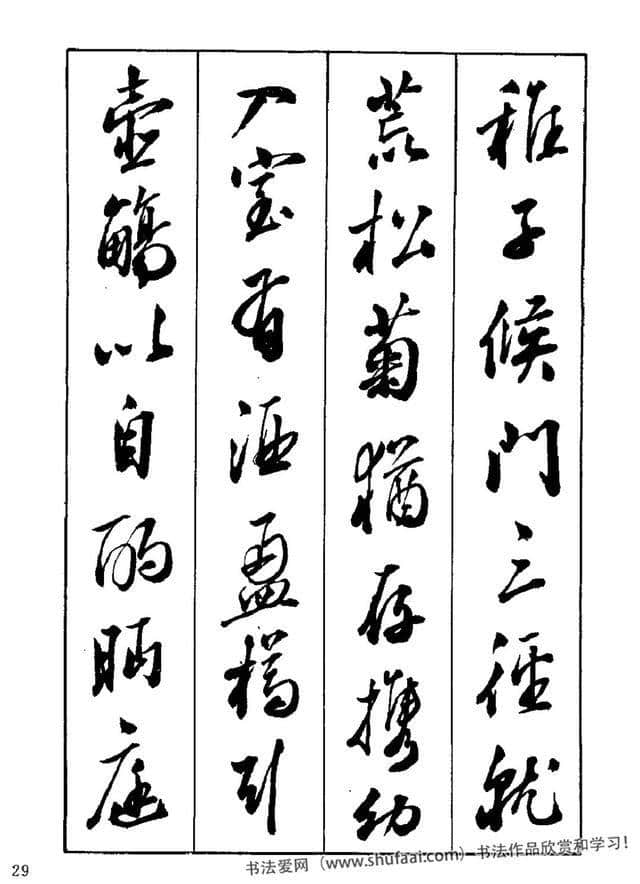 稚子候門三徑就
荒松菊猶存攜幼
入室有酒盈樽引
壺觴以自酌眄庭
29
书法爱网（www.shufaai.com）-书法作品欣赏和学习！